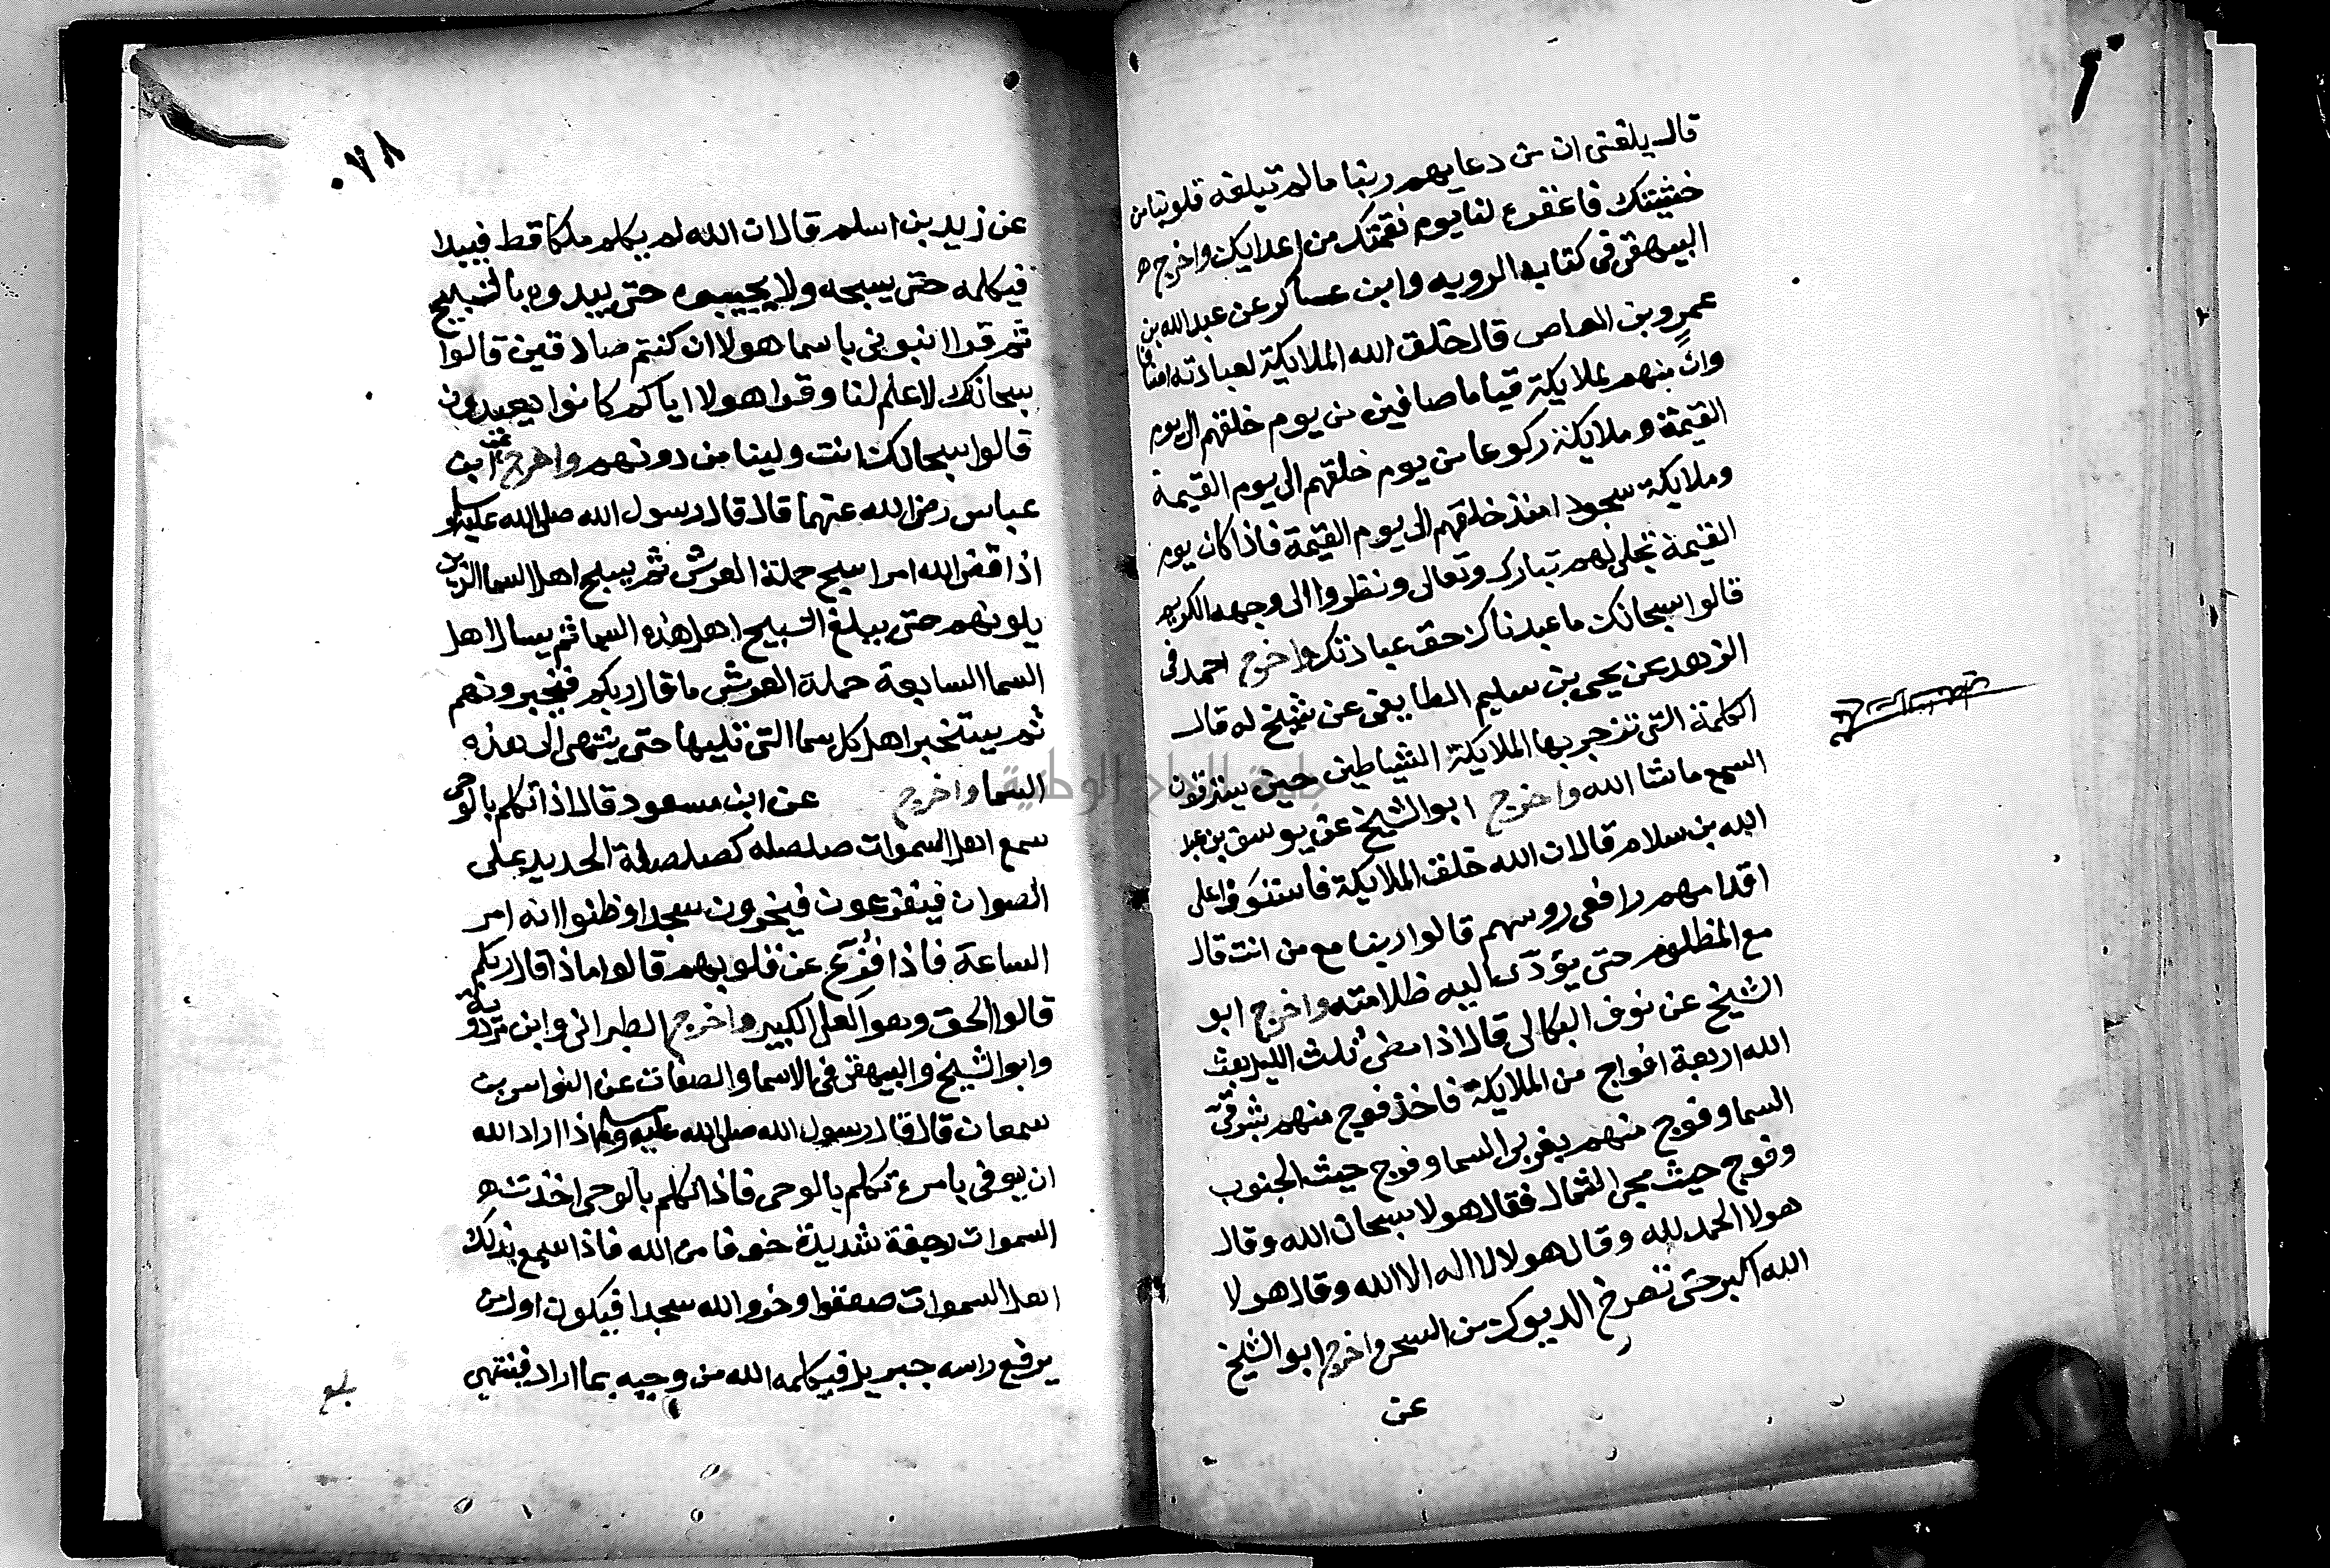 قال بلغنى ان من دعايهم ربنا ما لم تبلغه قلوبنا من
خشيتك فاغفره لنا يوم نقمتك من اعدايك واخرج
البيهقى فى كتاب الرويه وابن عساكر عن عبد الله بن
عمرو بن العاص قال خلق الله الملايكة لعبادته اصنافا
وان منهم لملايكة قياما صافين من يوم خلقهم الى يوم
القيمة وملايكة ركوعا من يوم خلقهم الى يوم القيمة
وملايكة سجودا منذ خلقهم الى يوم القيمة فاذا كان يوم
القيمة تجلى لهم تبارك وتعالى ونظروا الى وجهه الكريم
قالوا سبحانك ما عبدناك حق عبادتك واخرج احمد فى
الزهد عن يحيى بن سليم الطايفى عن شيخ له قال
الكلمة التى تزجر بها الملايكة الشياطين حين يسترقون
السمع ما شا الله واخرج ابو الشيخ عن يوسف بن عبد
الله بن سلام قال ان الله خلق الملايكة فاستووا على
اقدامهم رافعى روسهم قالوا ربنا مع من انت قال
مع المظلوم حتى يؤدى اليه ظلامته واخرج ابو
الشيخ عن نوف البكالى قال اذا مضى ثلث الليل بعث
الله اربعة افواج من الملايكة فاخذ فوج منهم بشرقى
السما وفوج منهم بغربى السما وفوج حيث الجنوب
وفوج حيث مجى الشمال فقال هولا سبحان الله وقال
هولا الحمد لله وقال هولا لا اله الا الله وقال هولا
الله اكبر حتى تصرخ الديوك من السحر واخرج ابو الشيخ
عن
٠٧٨
عن زيد بن اسلم قال ان الله لم يكلم ملكا قط فيبدا
فيكلمه حتى يسبحه ولا يجيبه حتى يبدوه بالتسبيح
ثم قرا انبونى باسما هولا ان كنتم صادقين قالوا
سبحانك لا علم لنا وقرا هولا اياكم كانوا يعبدون
قالوا سبحانك انت ولينا من دونهم واخرج عن ابن
عباس رضى الله عنهما قال قال رسول الله صلى الله عليه وسلم
اذا قضى الله امرا سبح حملة العرش ثم يسبح اهل السما الذين
يلونهم حتى يبلغ التسبيح اهل هذه السما ثم يسال اهل
السما السابعة حملة العرش ما قال ربكم فيخبرونهم
ثم يستخبر اهل كل سما التى تليها حتى ينتهى الى هذه
السما واخرج عن ابن مسعود قال اذا تكلم بالوحى
سمع اهل السموات صلصله كصلصلة الحديد على
الصوان فيتفزعون فيخرون سجدا وظنوا انه امر
الساعة فاذا فزع عن قلوبهم قالوا ماذا قال ربكم
قالوا الحق وهو العلى الكبير واخرج الطبرانى وابن مردويه
وابو الشيخ والبيهقى فى الاسما والصفات عن النواس بن
سمعان قال قال رسول الله صلى الله عليه وسلم اذا اراد الله
ان يوفى بامره تكلم بالوحى فاذا تكلم بالوحى اخذت
السموات رجفة شديدة خوفا من الله فاذا سمع بذلك
اهل السموات صعقوا وخروا لله سجدا فيكون اول من
يرفع راسه جبريل فيكلمه الله من وحيه بما اراد فينتهى
بلغ